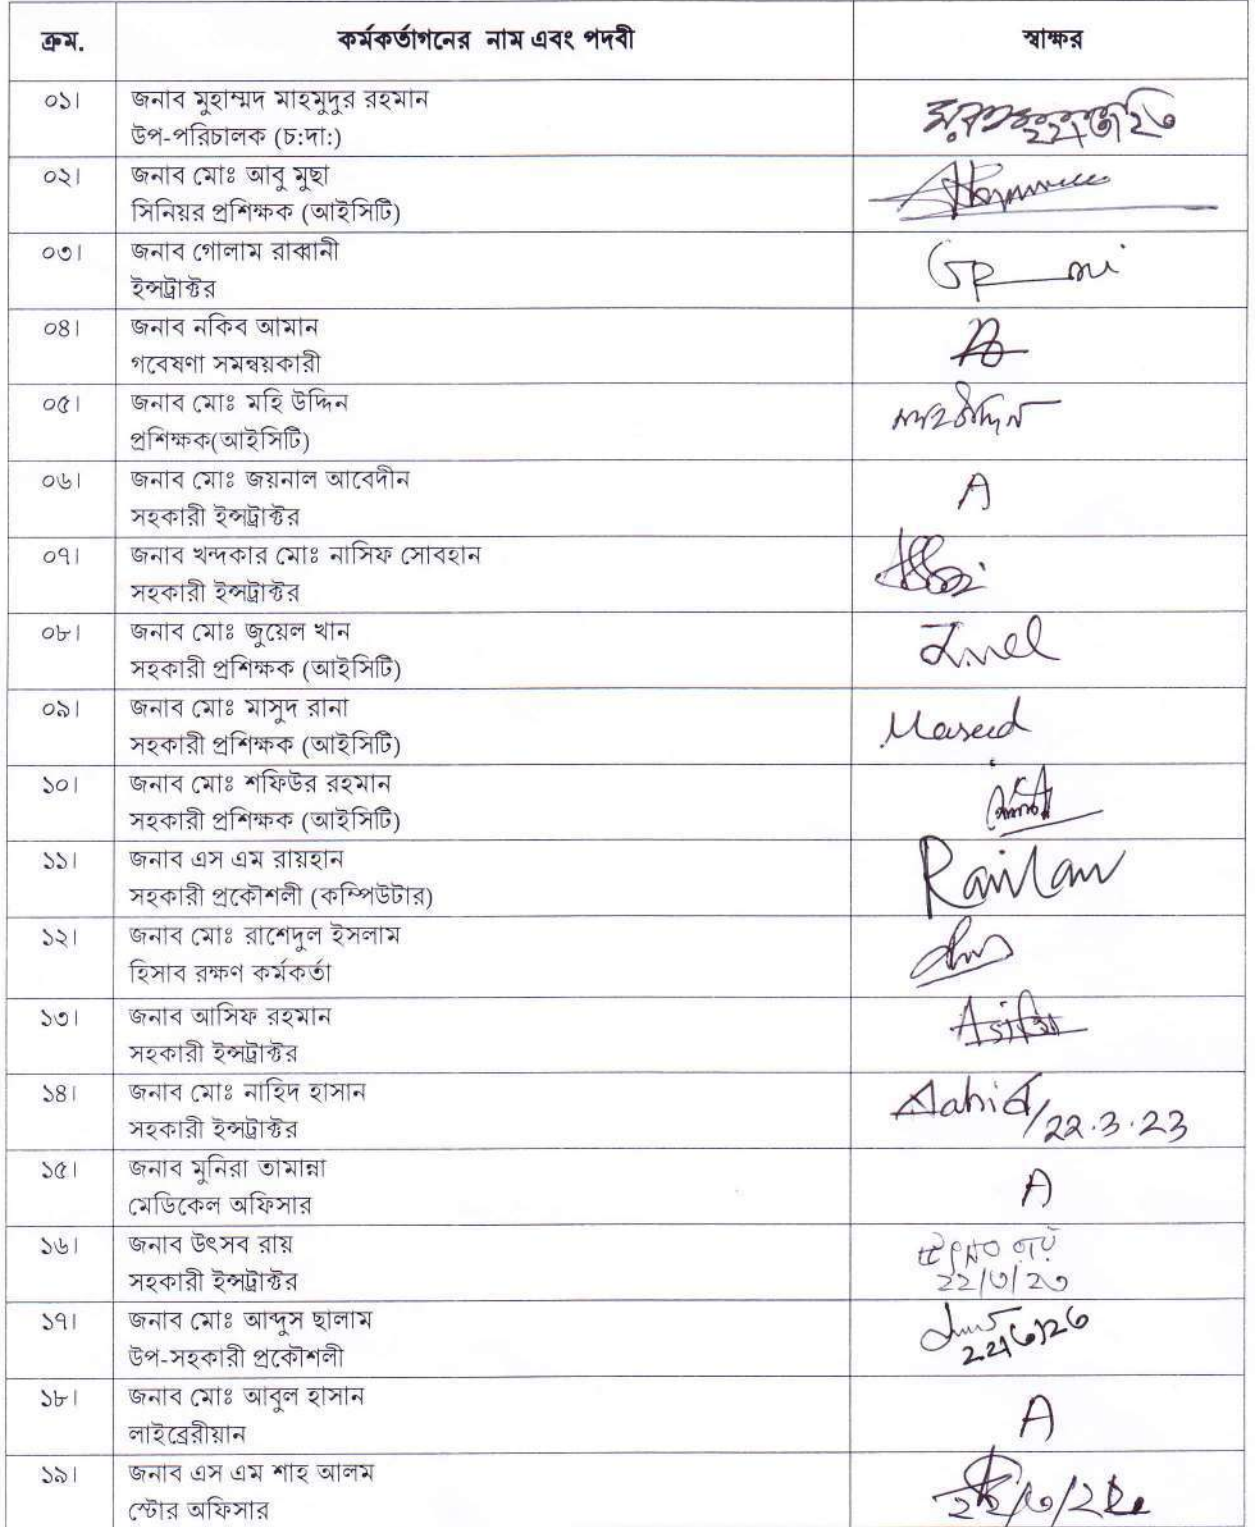 ক্রম. কর্মকর্তাগনের নাম এবং পদবী স্বাক্ষর
০১। জনাব মুহাম্মদ মাহমুদুর রহমান
উপ-পরিচালক (চ:দা:)
০২। জনাব মোঃ আবু মুছা
সিনিয়র প্রশিক্ষক (আইসিটি)
০৩। জনাব গোলাম রাব্বানী
ইন্সট্রাক্টর
০৪। জনাব নকিব আমান
গবেষণা সমন্বয়কারী
০৫। জনাব মোঃ মহি উদ্দিন
প্রশিক্ষক(আইসিটি)
০৬। জনাব মোঃ জয়নাল আবেদীন A
সহকারী ইন্সট্রাক্টর
০৭। জনাব খন্দকার মোঃ নাসিফ সোবহান
সহকারী ইন্সট্রাক্টর
০৮। জনাব মোঃ জুয়েল খান
সহকারী প্রশিক্ষক (আইসিটি)
০৯। জনাব মোঃ মাসুদ রানা Masud
সহকারী প্রশিক্ষক (আইসিটি)
১০। জনাব মোঃ শফিউর রহমান
সহকারী প্রশিক্ষক (আইসিটি)
১১। জনাব এস এম রায়হান Raihan
সহকারী প্রকৌশলী (কম্পিউটার)
১২। জনাব মোঃ রাশেদুল ইসলাম
হিসাব রক্ষণ কর্মকর্তা
১৩। জনাব আসিফ রহমান
সহকারী ইন্সট্রাক্টর
১৪। জনাব মোঃ নাহিদ হাসান Nahid/22.3.23
সহকারী ইন্সট্রাক্টর
১৫। জনাব মুনিরা তামান্না A
মেডিকেল অফিসার
১৬। জনাব উৎসব রায় উৎসব রায়
সহকারী ইন্সট্রাক্টর ২২/৩/২৩
১৭। জনাব মোঃ আব্দুস ছালাম
উপ-সহকারী প্রকৌশলী ২২/৩/২৩
১৮। জনাব মোঃ আবুল হাসান A
লাইব্রেরীয়ান
১৯। জনাব এস এম শাহ আলম
স্টোর অফিসার